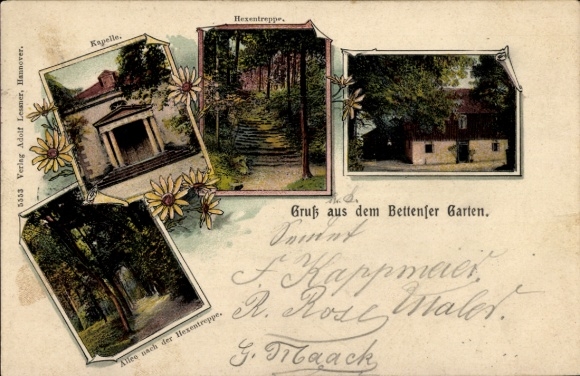 Hexentreppe.
Kapelle.
5553 Verlag Adolf Lessner, Hannover.
Gruß aus dem Bettenser Garten.
F. Kappmeier
R. Rose Maler.
G. Maack
Allee nach der Hexentreppe.